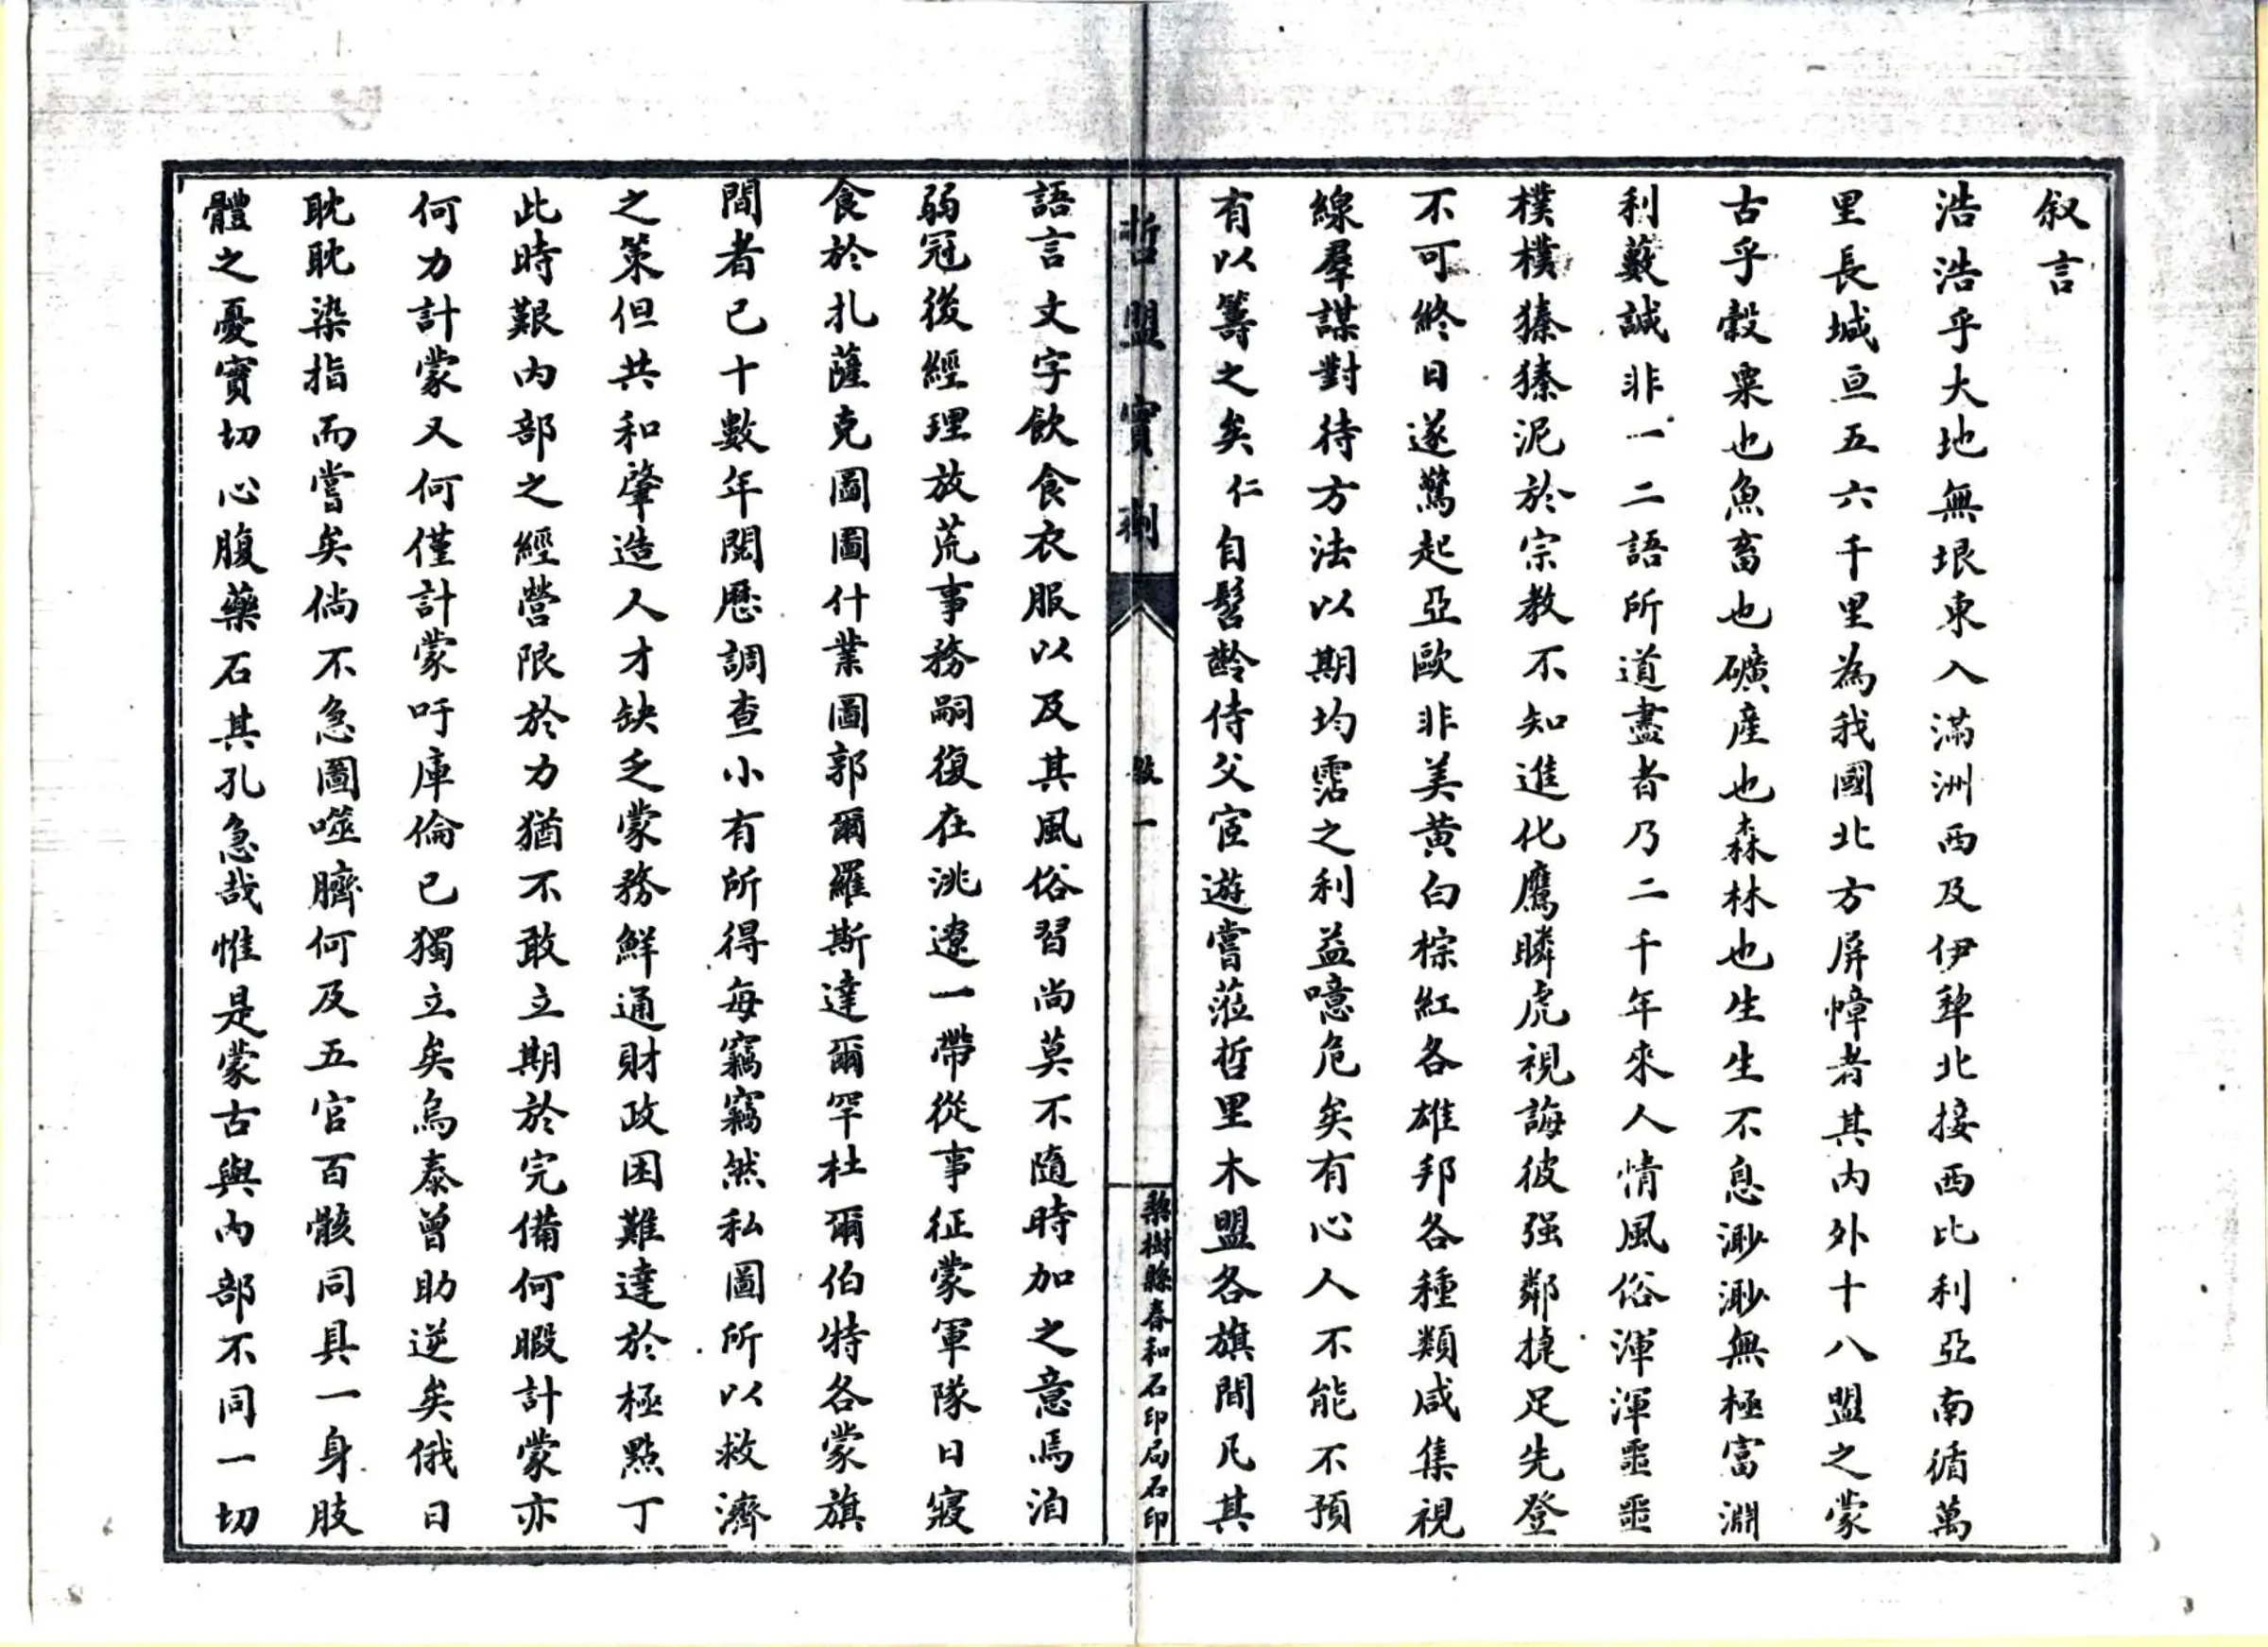 叙言
浩浩乎大地無垠東入滿洲西及伊犂北接西比利亞南循萬
里長城亘五六千里為我國北方屏幛者其內外十八盟之蒙
古乎穀粟也魚畜也礦產也森林也生生不息渺渺無極富淵
利藪誠非一二語所道盡者乃二千年來人情風俗渾渾噩噩
樸樸獉獉泥於宗教不知進化鷹瞵虎視誨彼强鄰捷足先登
不可終日遂驚起亞歐非美黄白棕紅各雄邦各種類咸集視
線羣謀對待方法以期均霑之利益噫危矣有心人不能不預
有以籌之矣仁自髫齡侍父宦遊嘗蒞哲里木盟各旗間凡其
哲盟實剂
叙一
棃樹縣春和石印局石印
語言文字飲食衣服以及其風俗習尚莫不隨時加之意焉洎
弱冠後經理放荒事務嗣復在洮遼一帶從事征蒙軍隊日寢
食於扎薩克圖圖什業圖郭爾羅斯達爾罕杜爾伯特各蒙旗
間者已十數年閱歷調查小有所得每竊竊然私圖所以救濟
之策但共和肇造人才缺乏蒙務鮮通財政困難達於極點丁
此時艱內部之經營限於力猶不敢立期於完備何暇計蒙亦
何力計蒙又何僅計蒙吁庫倫已獨立矣烏泰曾助逆矣俄日
耽耽染指而嘗矣倘不急圖噬臍何及五官百骸同具一身肢
體之憂實切心腹藥石其孔急哉惟是蒙古與內部不同一切